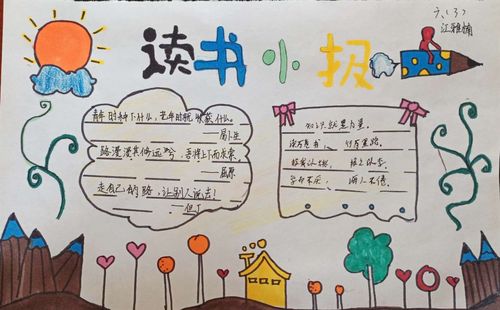 读书小报
六（3）
江雅楠
青年时种下什么，老年时就收获什么。
——易卜生
路漫漫其修远兮，吾将上下而求索。
——屈原
走自己的路，让别人说去！
——但丁
知识就是力量。
读万卷书，行万里路。
学而不厌，诲人不倦。